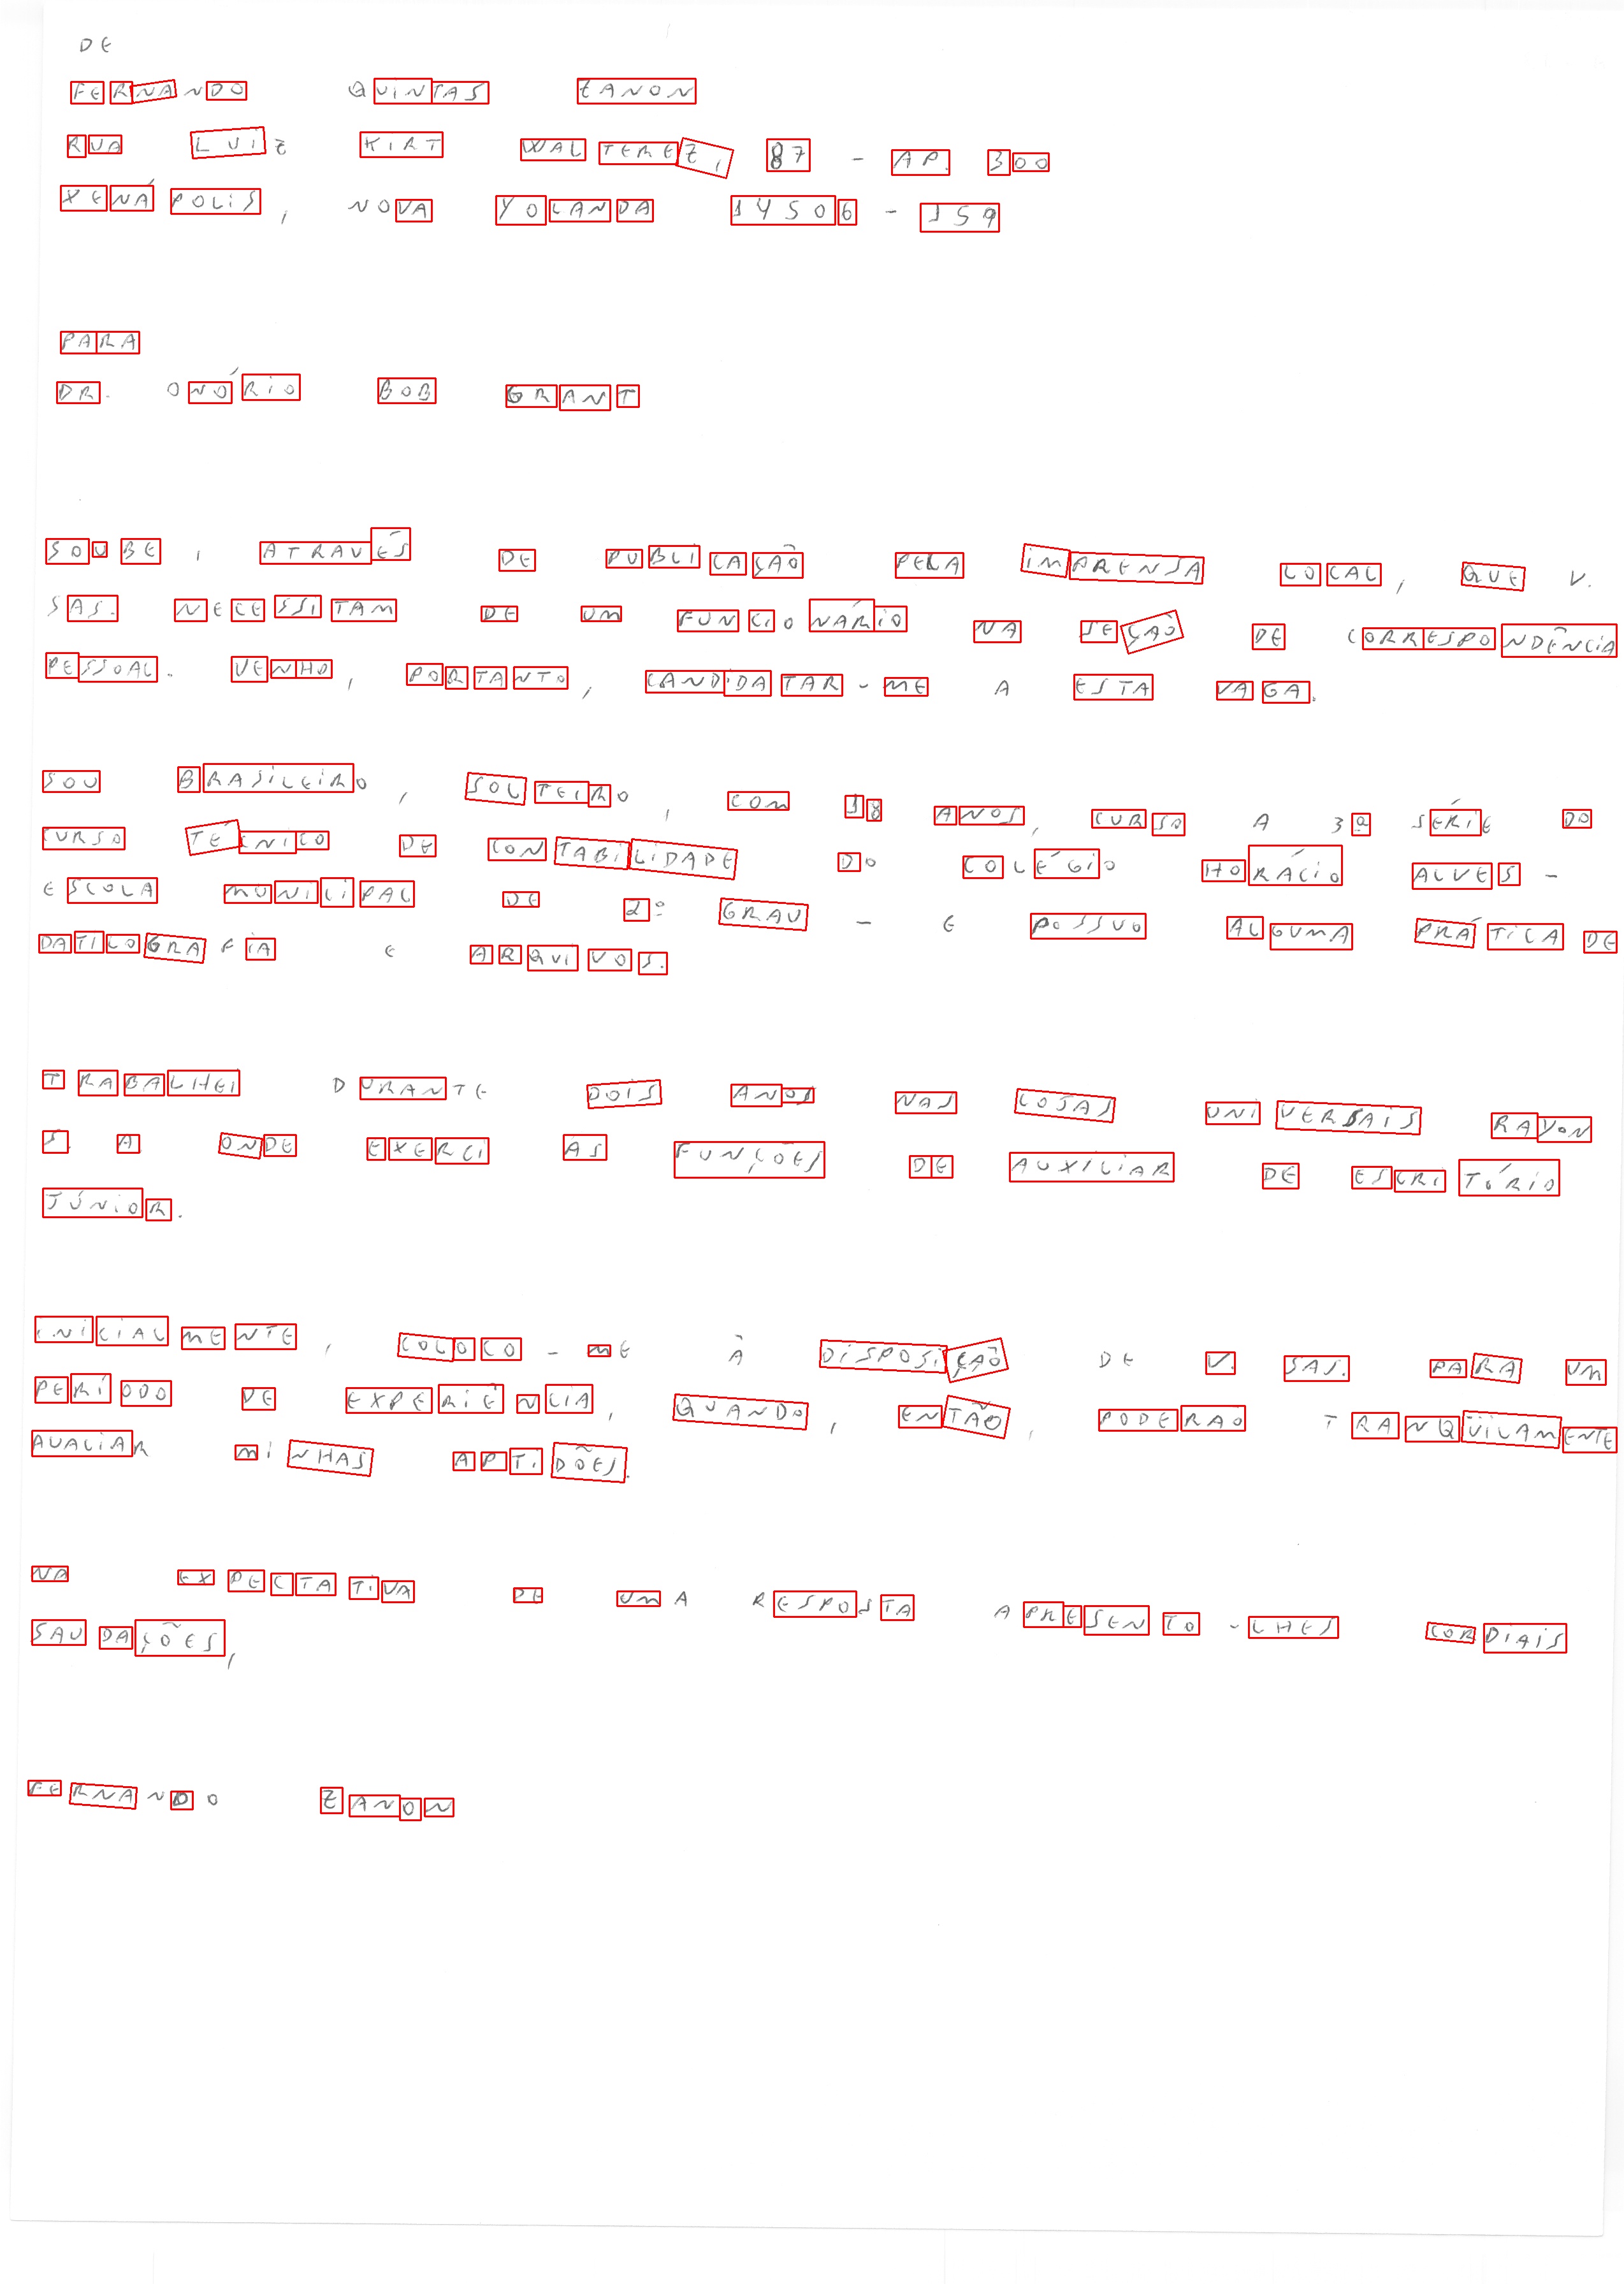 DE
FERNANDO QUINTAS ZANON
RUA LUIZ KIRT WALTEREZ, 87 - AP. 300
XENÁPOLIS, NOVA YOLANDA 14506-159
PARA
DR. ONÓRIO BOB GRANT
SOUBE, ATRAVÉS DE PUBLICAÇÃO PELA IMPRENSA LOCAL, QUE V.
SAS. NECESSITAM DE UM FUNCIONÁRIO NA SEÇÃO DE CORRESPONDÊNCIA
PESSOAL. VENHO, PORTANTO, CANDIDATAR-ME A ESTA VAGA.
SOU BRASILEIRO, SOLTEIRO, COM 18 ANOS, CURSO A 3ª SÉRIE DO
CURSO TÉCNICO DE CONTABILIDADE DO COLÉGIO HORÁCIO ALVES -
ESCOLA MUNICIPAL DE 2º GRAU - E POSSUO ALGUMA PRÁTICA DE
DATILOGRAFIA E ARQUIVOS.
TRABALHEI DURANTE DOIS ANOS NAS LOJAS UNIVERSAIS RAYON
S. A ONDE EXERCI AS FUNÇÕES DE AUXILIAR DE ESCRITÓRIO
JÚNIOR.
INICIALMENTE, COLOCO-ME À DISPOSIÇÃO DE V. SAS. PARA UM
PERÍODO DE EXPERIÊNCIA, QUANDO, ENTÃO, PODERAO TRANQÜILAMENTE
AVALIAR MINHAS APTIDÕES.
NA EXPECTATIVA DE UMA RESPOSTA APRESENTO-LHES CORDIAIS
SAUDAÇÕES,
FERNANDO ZANON